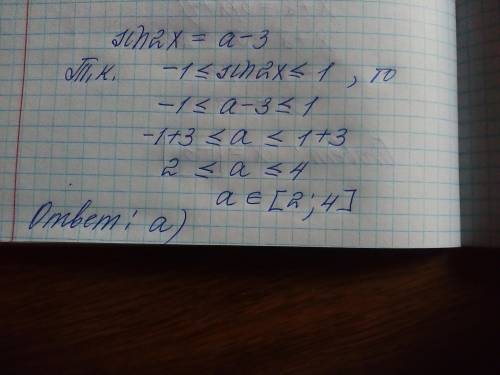 sin2x = a-3
Т.к. -1≤sin2x≤1, то
-1≤a-3≤1
-1+3≤a≤1+3
2≤a≤4
a∈[2;4]
Ответ: а)